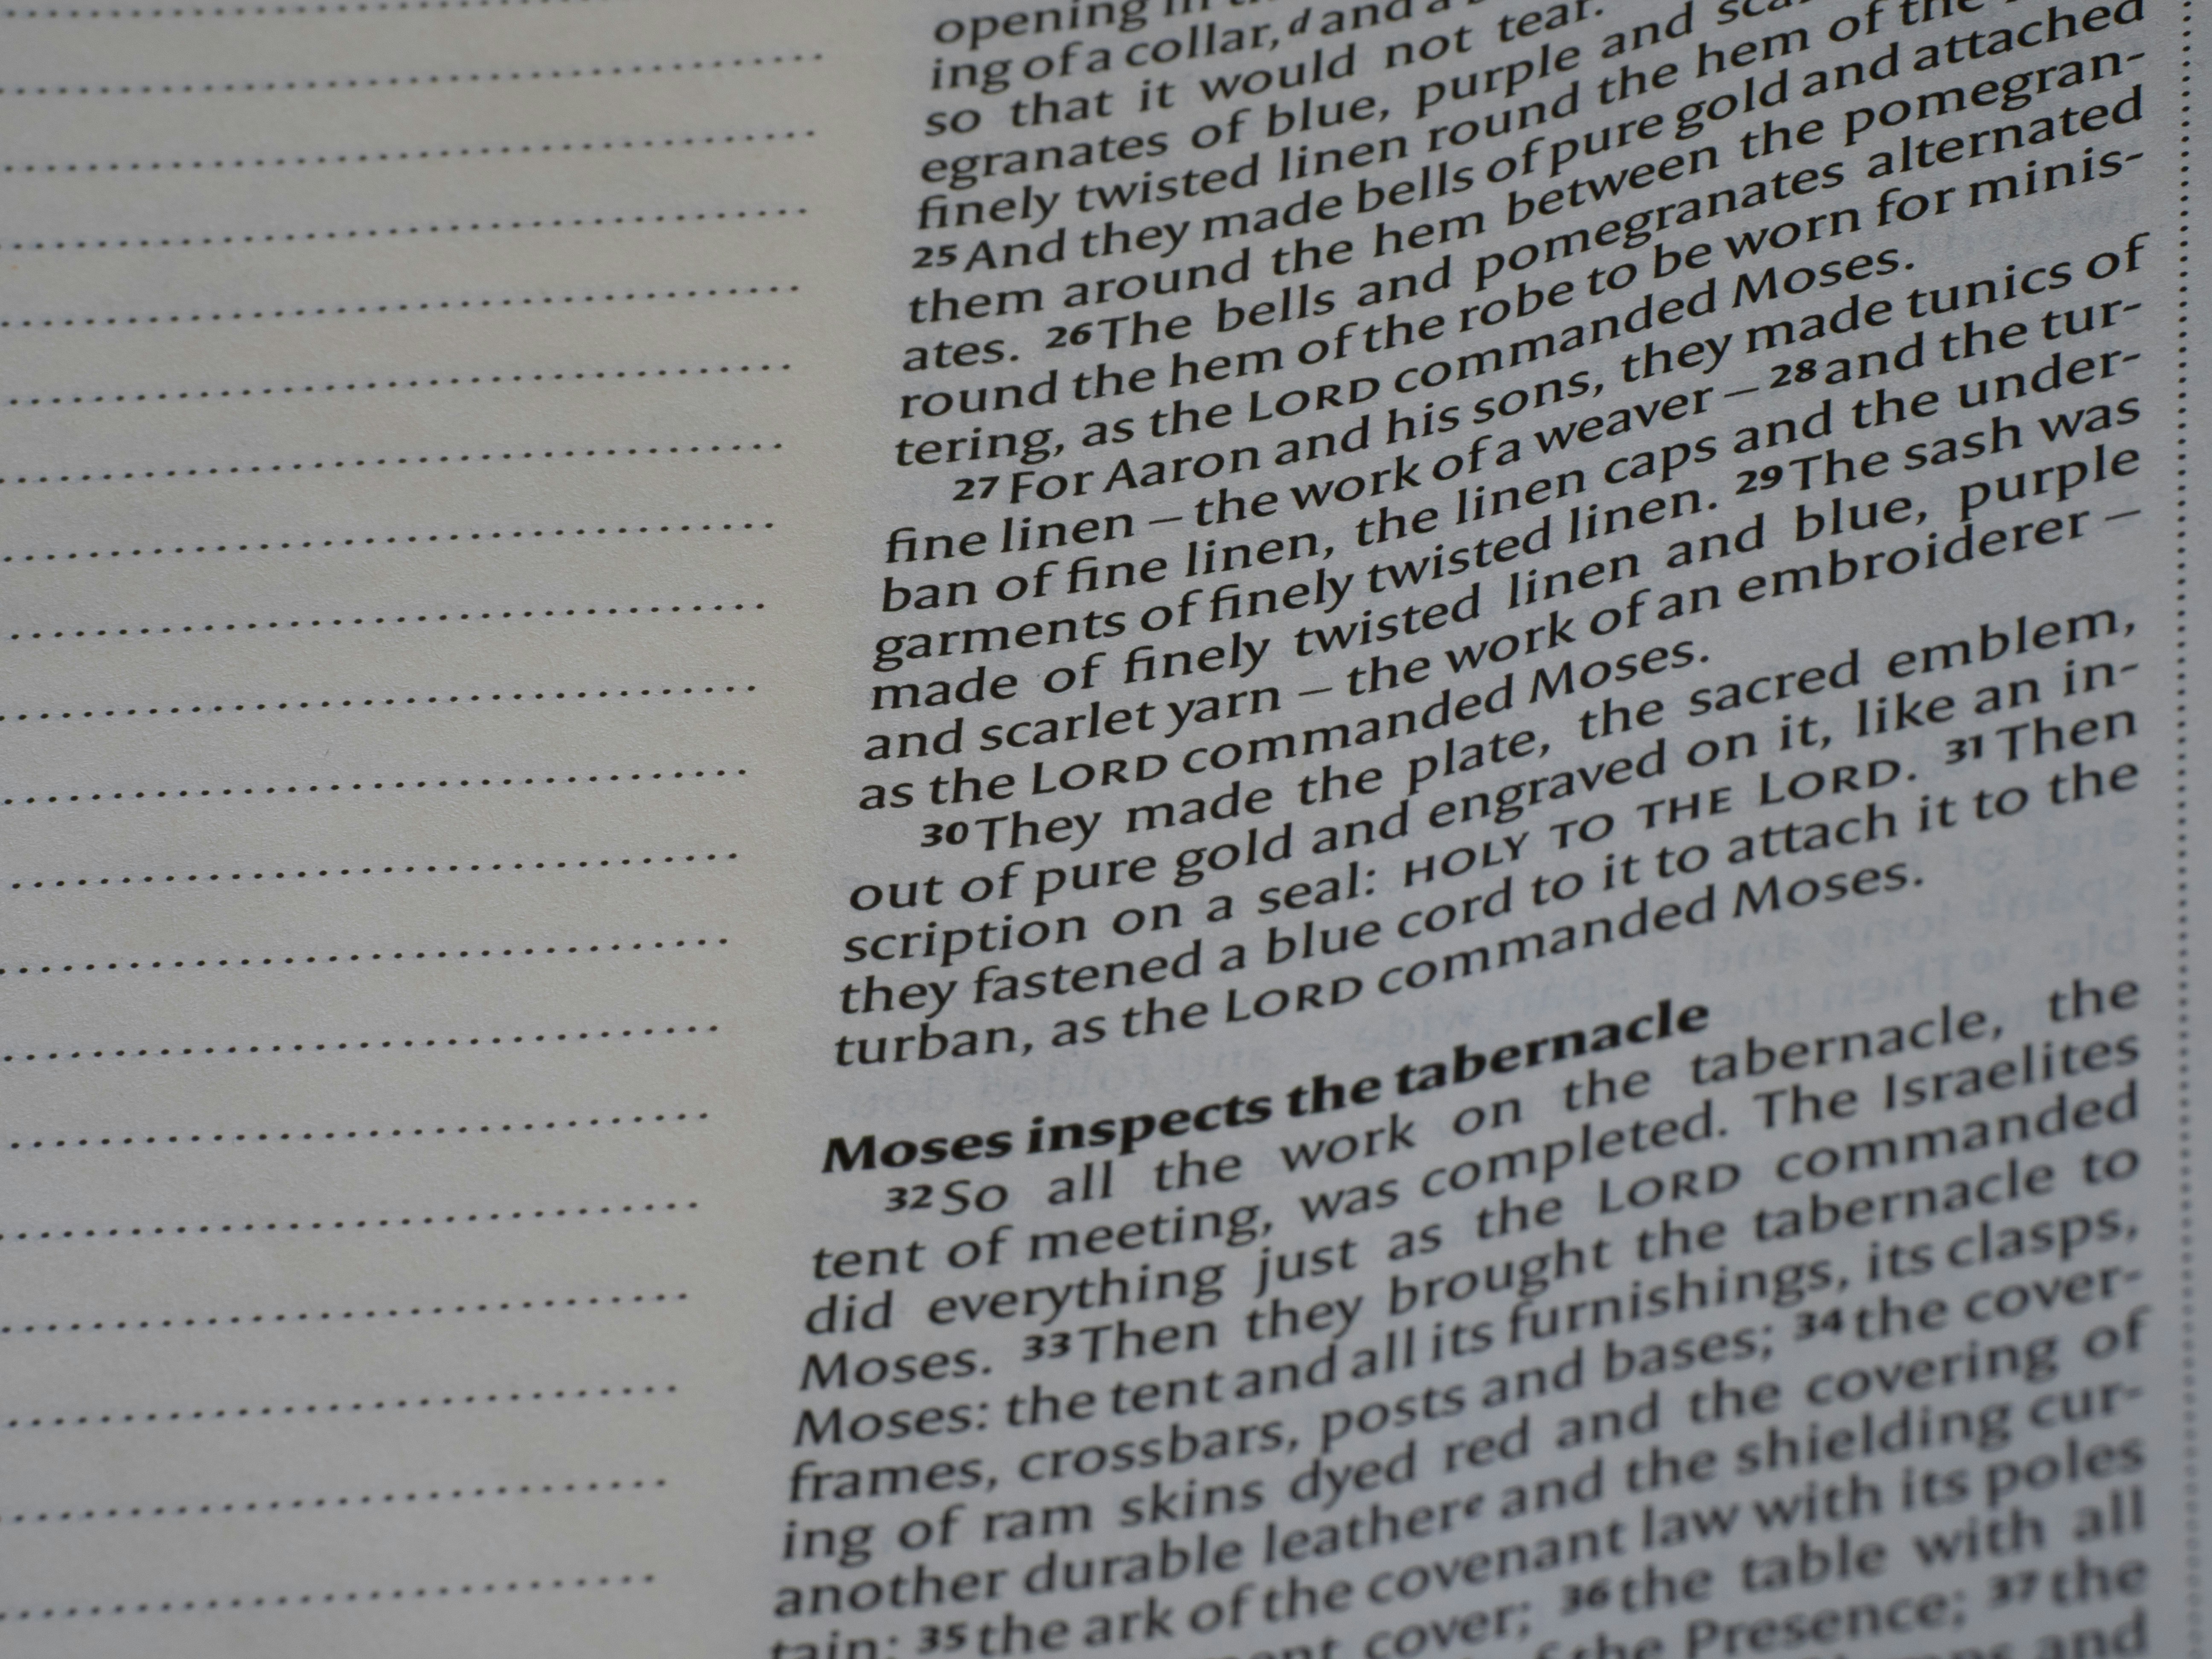 opening in
ing of a collar, d and a
so that it would not tear.
egranates of blue, purple and
finely twisted linen round the hem of the
25 And they made bells of pure gold and attached
them around the hem between the pomegran-
ates. 26 The bells and pomegranates alternated
round the hem of the robe to be worn for minis-
tering, as the LORD commanded Moses.
27 For Aaron and his sons, they made tunics of
fine linen – the work of a weaver – 28 and the tur-
ban of fine linen, the linen caps and the under-
garments of finely twisted linen. 29 The sash was
made of finely twisted linen and blue, purple
and scarlet yarn – the work of an embroiderer –
as the LORD commanded Moses.
30 They made the plate, the sacred emblem,
out of pure gold and engraved on it, like an in-
scription on a seal: HOLY TO THE LORD. 31 Then
they fastened a blue cord to it to attach it to the
turban, as the LORD commanded Moses.
Moses inspects the tabernacle
32 So all the work on the tabernacle, the
tent of meeting, was completed. The Israelites
did everything just as the LORD commanded
Moses. 33 Then they brought the tabernacle to
Moses: the tent and all its furnishings, its clasps,
frames, crossbars, posts and bases; 34 the cover-
ing of ram skins dyed red and the covering of
another durable leather e and the shielding cur-
tain; 35 the ark of the covenant law with its poles
cover; 36 the table with all
the Presence; 37 the
and